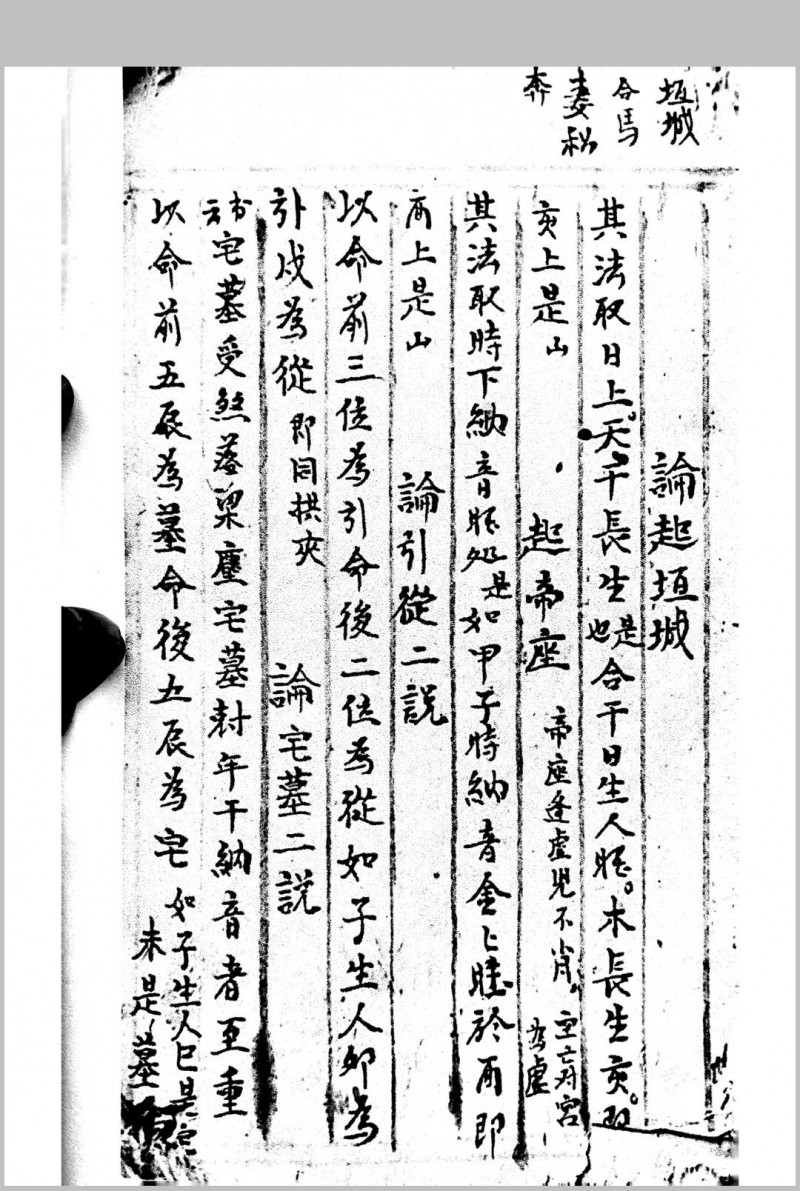 垣城
合馬
妻私
奔
論起垣城
其法取日上天干長生是也合干日生人旺木長生亥即
亥上是山 起帝座 帝座逢虛児不肖 空亡对宮為虛
其法取時下納音旺処是如甲子時納音金々旺於酉即
酉上是山 論引從二説
以命前三位為引命後二位為從如子生人卯為
引戌為從 即同拱夾 論宅墓二説
宅墓受煞落梁塵宅墓对年干納音者至重
以命前五辰為墓命後五辰為宅 如子生人巳是宅未是墓